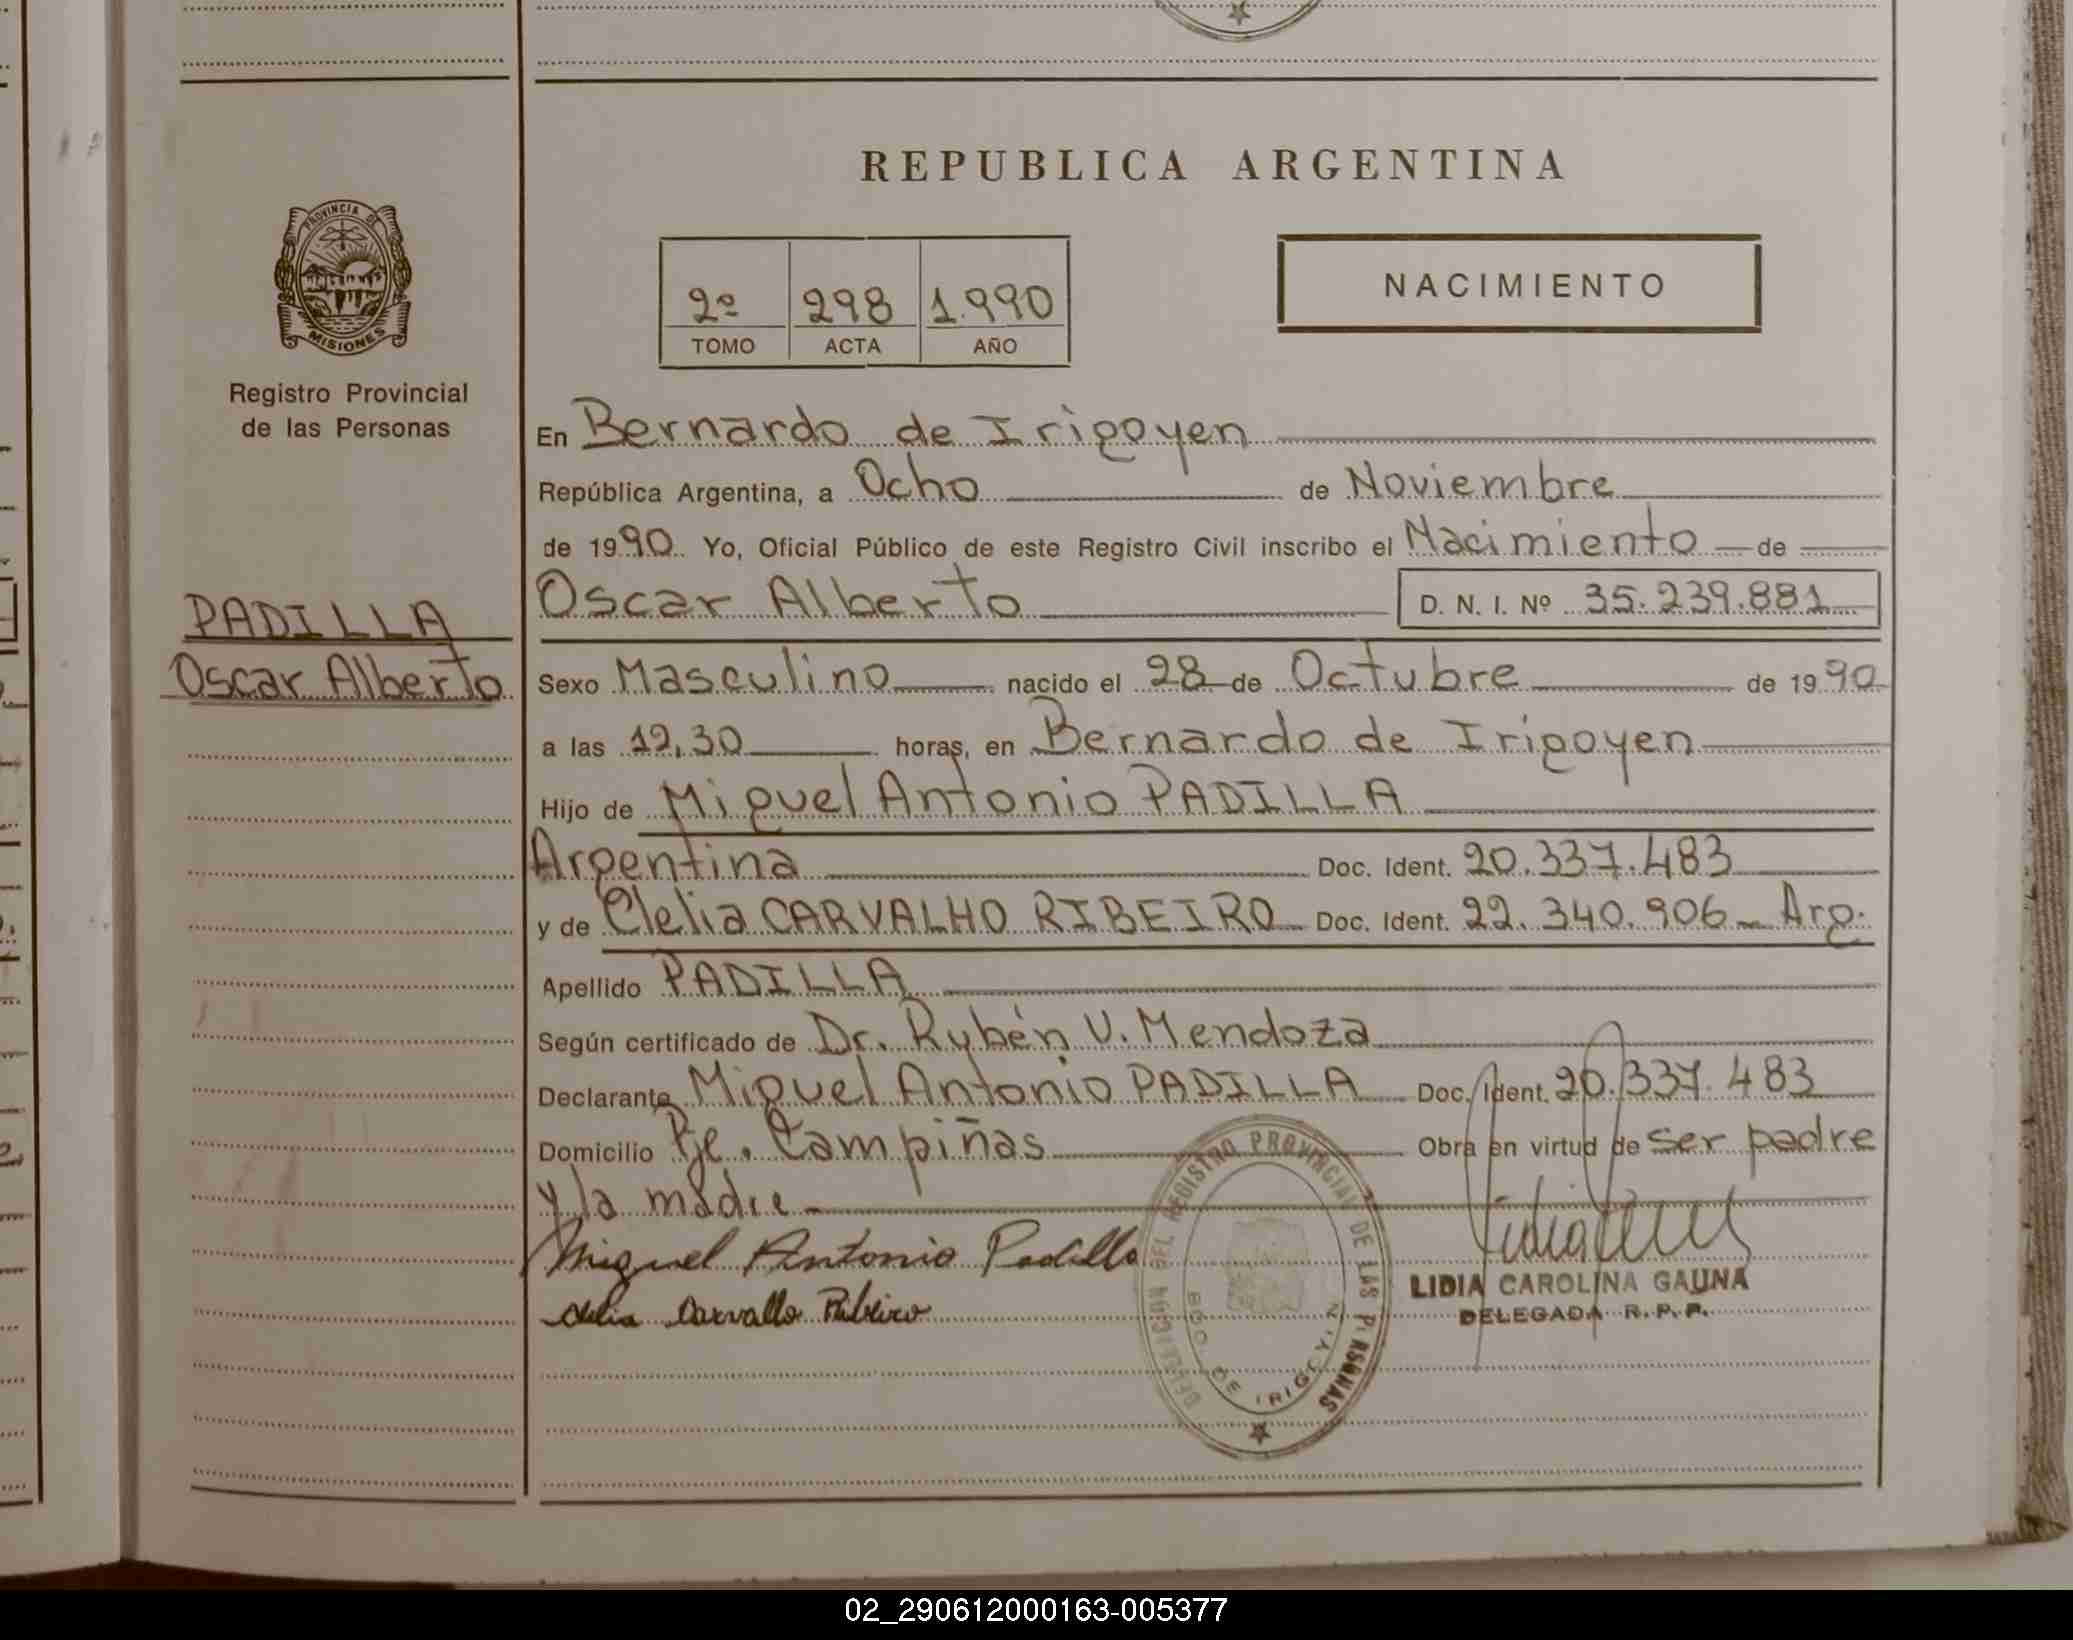 REPUBLICA ARGENTINA
PROVINCIA DE
MISIONES
Registro Provincial
de las Personas
2º 298 1.990
TOMO ACTA AÑO
NACIMIENTO
En Bernardo de Irigoyen
República Argentina, a Ocho de Noviembre
de 1990 Yo, Oficial Público de este Registro Civil inscribo el Nacimiento de
PADILLA
Oscar Alberto
Oscar Alberto D. N. I. Nº 35.239.881
Sexo Masculino nacido el 28 de Octubre de 1990
a las 12,30 horas, en Bernardo de Irigoyen
Hijo de Miguel Antonio PADILLA
Argentina Doc. Ident. 20.337.483
y de Clelia CARVALHO RIBEIRO Doc. Ident. 22.340.906 Arg.
Apellido PADILLA
Según certificado de Dr. Rubén V. Mendoza
Declarante Miguel Antonio PADILLA Doc. Ident. 20.337.483
Domicilio Pje. Campiñas Obra en virtud de ser padre
y la madre
Miguel Antonio Padilla
Clelia Carvallo Ribeiro
LIDIA CAROLINA GAUNA
DELEGADA R. P. P.
DELEGACION DEL REGISTRO PROVINCIAL DE LAS PERSONAS
BDO. DE IRIGOYEN
02_290612000163-005377